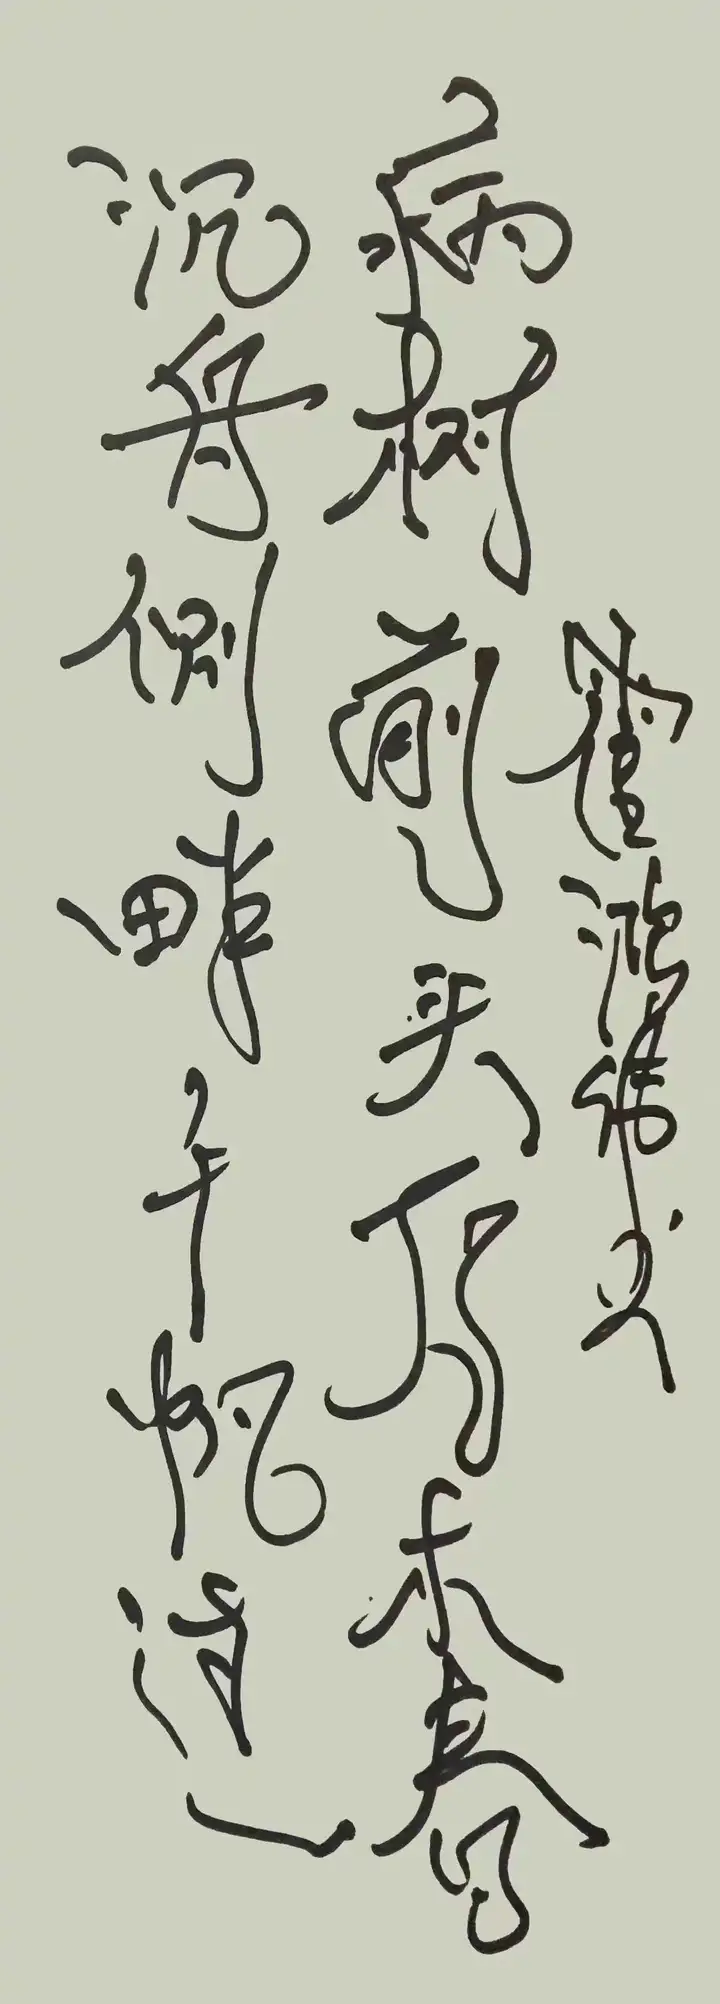 沉舟侧畔千帆过
病树前头万木春
鸿书